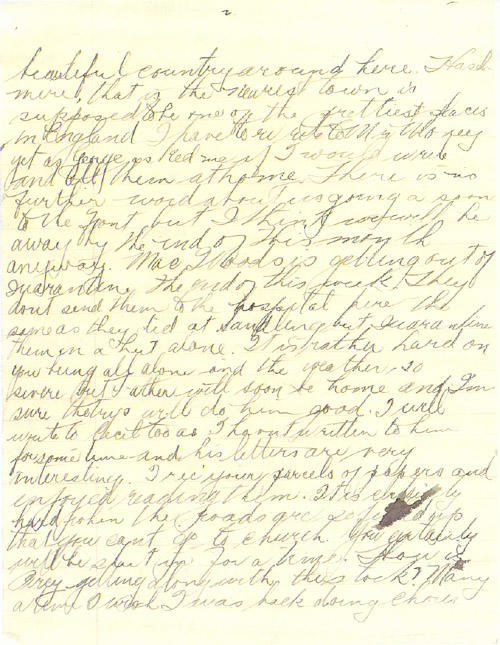 2
beautiful country around here. Hasel-
mere, that is the nearest town is
supposed to be one of the prettiest places
in England I have to write to Mr
yet as George asked me if I would write
and tell them at home. There is no
further word about us going a soon
to the front but I think we will be
away by the end of this month
anyway. Mac Woods is getting out of
quarantine the end of this week. They
dont send them to the hospital here the
same as they did at Sandling but quarantine
them in a hut alone. It is rather hard on
you being all alone and the weather so
severe but father will soon be home and I'm
sure the trip will do him good. I will
write to Cecil too as I havnt written to him
for some time and his letters are very
interesting. I rec your parcels of papers and
enjoyed reading them. It is
hard when the roads are so
that you cant go to church You certainly
will be shut up for a time. How is
Percy getting along with the stock? Many
a time I wish I was back doing chores